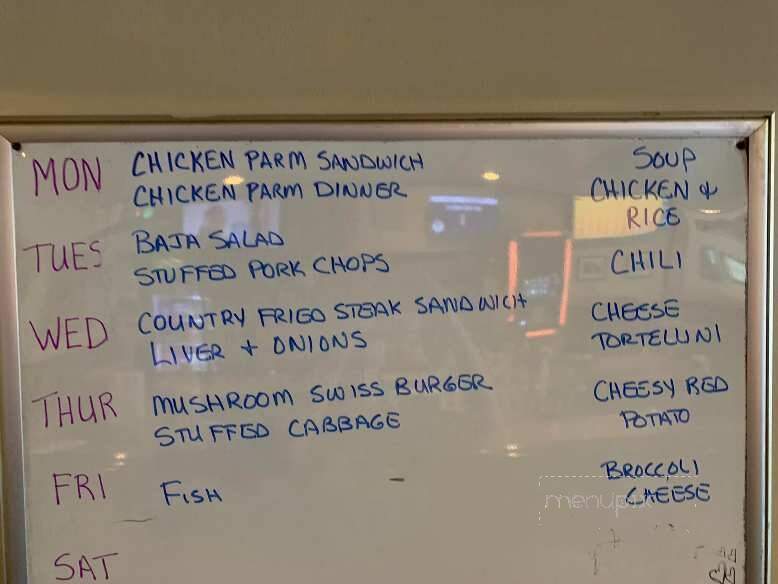 MON CHICKEN PARM SANDWICH SOUP
CHICKEN PARM DINNER CHICKEN &
RICE
TUES BAJA SALAD
STUFFED PORK CHOPS CHILI
WED COUNTRY FRIED STEAK SANDWICH CHEESE
LIVER + ONIONS TORTELLINI
THUR MUSHROOM SWISS BURGER CHEESY RED
STUFFED CABBAGE POTATO
FRI FISH BROCCOLI
CHEESE
menupix
SAT